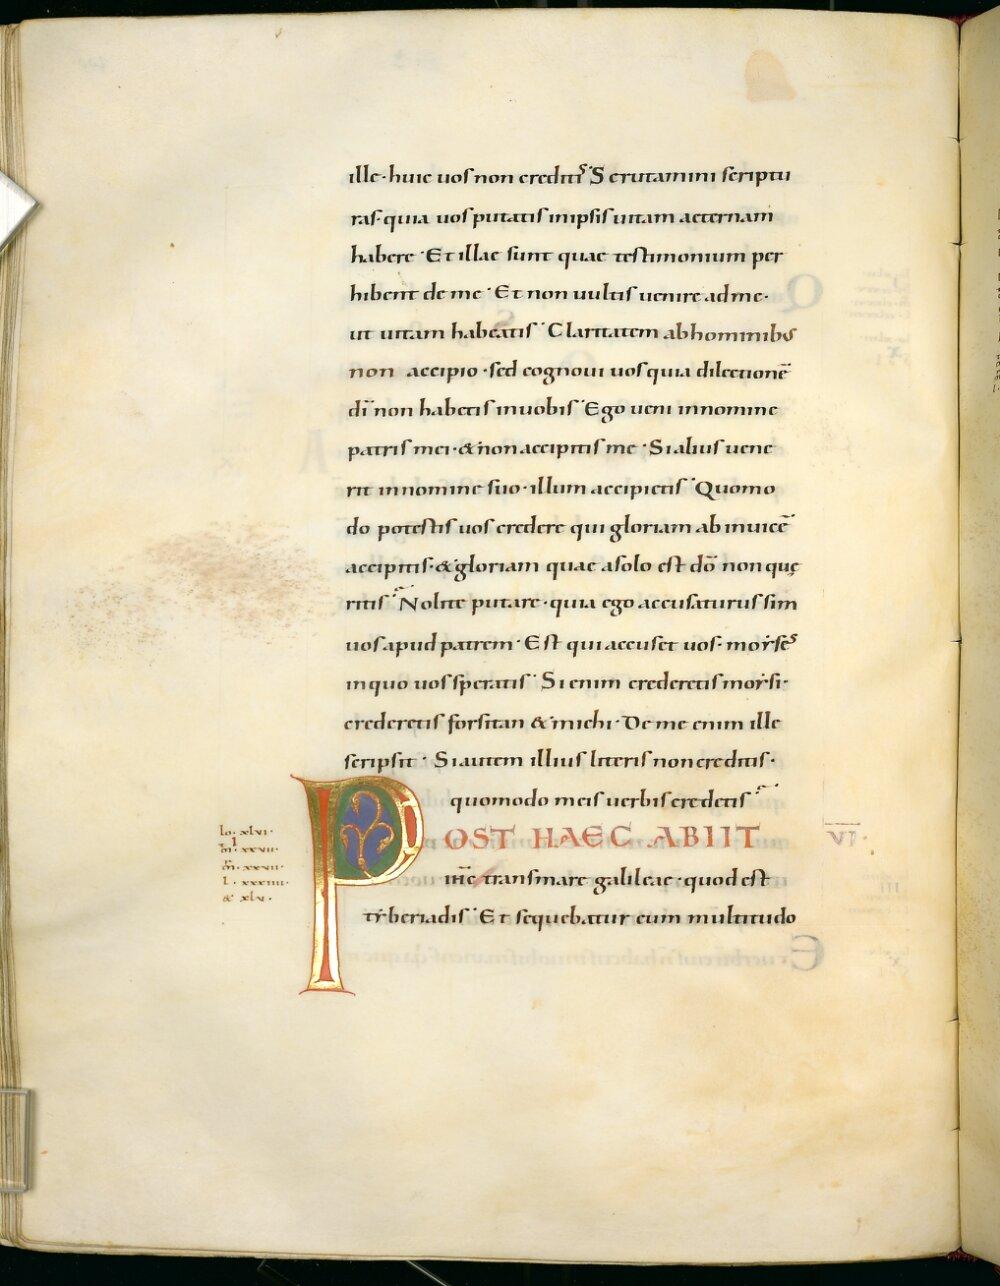 ille· huic uos non creditis Scrutamini scriptu
ras· quia uos putatis in ipsis uitam aeternam
habere· Et illae sunt quae testimonium per
hibent de me· Et non uultis uenire ad me·
ut uitam habeatis· Claritatem ab hominibus
non accipio· sed cognoui uos quia dilectionē
dī non habetis in uobis· Ego ueni in nomine
patris mei· & non accipitis me· Si alius uene
rit in nomine suo· illum accipietis· Quomo
do potestis uos credere qui gloriam ab inuicē
accipitis· & gloriam quae a solo est dō non quę
ritis· Nolite putare· quia ego accusaturus sim
uos apud patrem· Est qui accuset uos· moẏses
in quo uos speratis· Si enim crederetis moẏsi·
crederetis forsitan & michi· De me enim ille
scripsit· Si autem illius litteris non creditis·
quomodo meis uerbis credetis
POST HAEC ABIIT
VI·
io· xlvi·
m̄· xxvii·
m̄· xxvii·
l· xxxiiii·
& xlv·
ihc̄ trans mare galileae· quod est
tẏberiadis· Et sequebatur eum multitudo